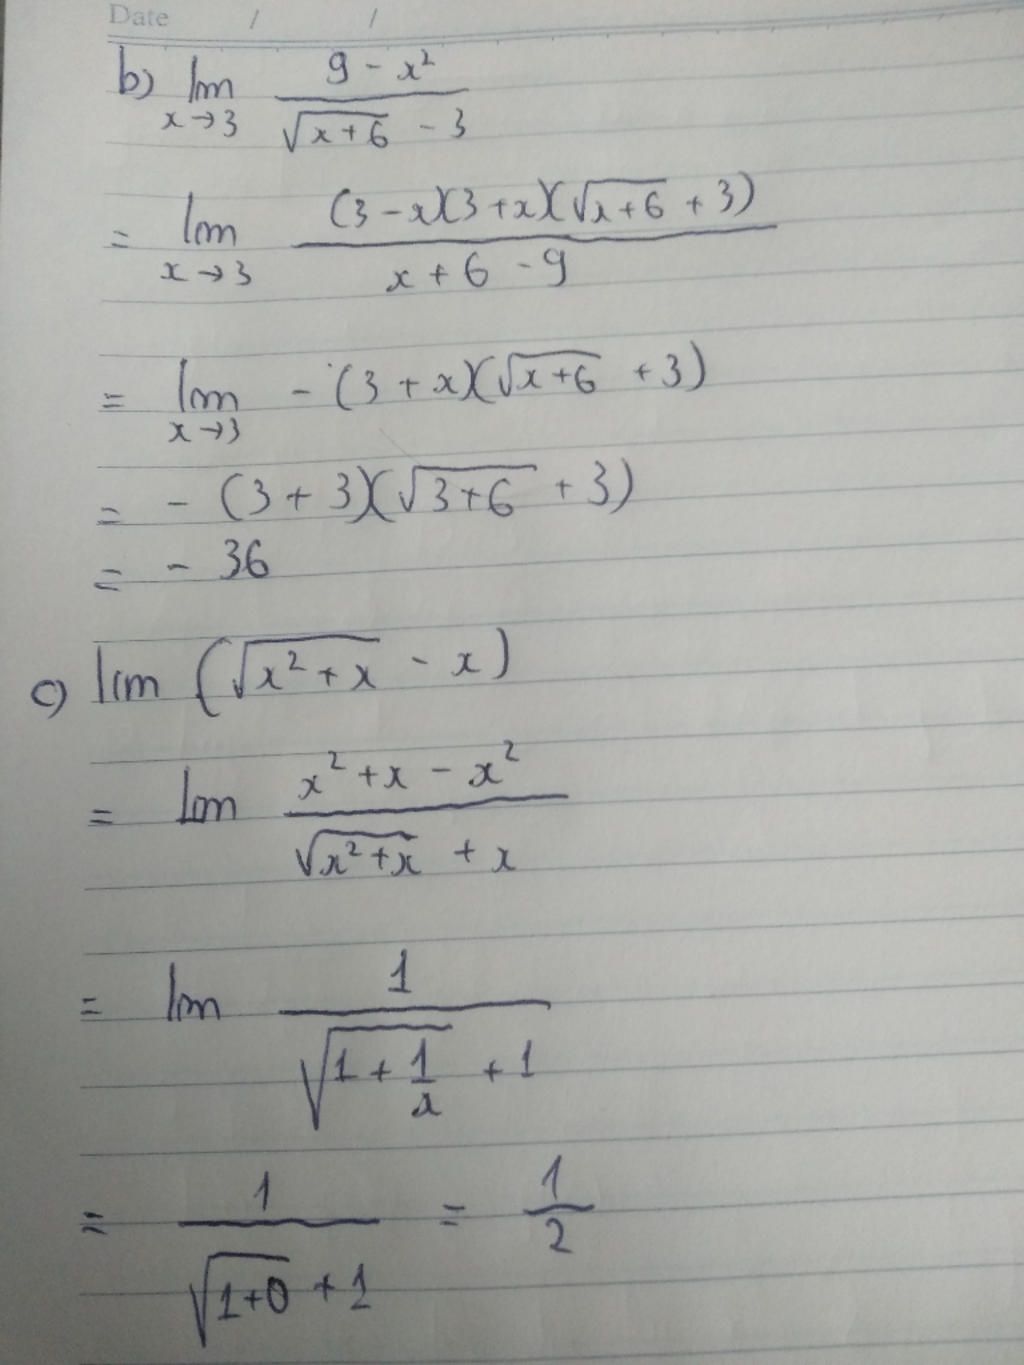 Date / /
b) lim x→3 (9 - x²)/(√(x+6) - 3)
= lim x→3 ((3-x)(3+x)(√(x+6) + 3))/(x + 6 - 9)
= lim x→3 -(3 + x)(√(x+6) + 3)
= - (3 + 3)(√(3+6) + 3)
= - 36
c) lim (√(x²+x) - x)
= lim (x² + x - x²)/(√(x²+x) + x)
= lim 1/(√(1 + 1/x) + 1)
= 1/(√(1+0) + 1) = 1/2